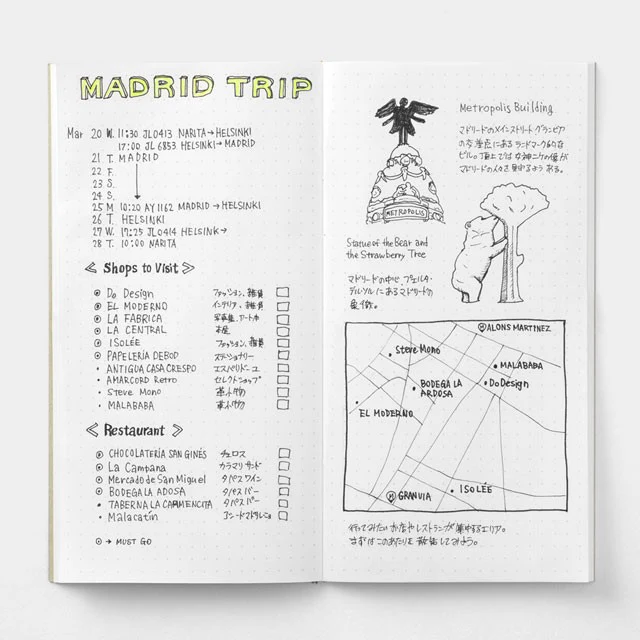 MADRID TRIP
Mar 20 W. 11:30 JL0413 NARITA→HELSINKI
17:00 JL 6853 HELSINKI→MADRID
21 T. MADRID
22 F.
23 S.
24 S.
25 M 10:20 AY1162 MADRID→HELSINKI
26 T. HELSINKI
27 W. 17:25 JL0414 HELSINK→
28 T. 10:00 NARITA
≪ Shops to Visit ≫
Do Design ファッション、雑貨
EL MODERNO インテリア、雑貨
LA FABRICA 写真集、アート本
LA CENTRAL 本屋
ISOLÉE ファッション、雑貨
PAPELERÍA DEBOD ステーショナリー
ANTIGUA CASA CRESPO エスパドリーユ
AMARCORD Retro セレクトショップ
Steve Mono 革小物
MALABABA 革小物
≪ Restaurant ≫
CHOCOLATERÍA SAN GINÉS チュロス
La Campana カラマリサンド
Mercado de San Miguel タパス ワイン
BODEGA LA ADOSA タパス バー
TABERNA LA CARMENCITA タパス バー
Malacatín
⊙ → MUST GO
Metropolis Building
マドリードのメインストリート グランビア
の交差点にあるランドマーク的な
ビル。頂上では女神ニケの像が
マドリードの人々を見守るようにある。
METROPOLIS
Statue of the Bear and
the Strawberry Tree
マドリードの中心、プエルタ・
デル・ソルにあるマドリードの
象徴。
ALONS MARTINEZ
Steve Mono
MALABABA
Do Design
BODEGA LA
ARDOSA
EL MODERNO
ISOLÉE
M GRANVIA
行ってみたいお店やレストランが集中するエリア。
まずはこのあたりを散策してみよう。